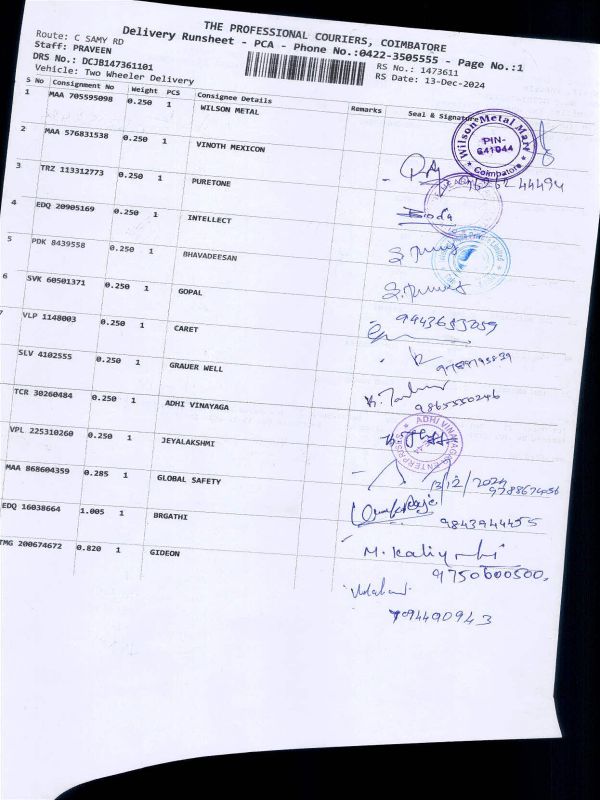 THE PROFESSIONAL COURIERS, COIMBATORE
Delivery Runsheet - PCA - Phone No.:0422-3505555 - Page No.:1
Route: C SAMY RD
Staff: PRAVEEN
DRS No.: DCJB147361101
RS No.: 1473611
Vehicle: Two Wheeler Delivery
RS Date: 13-Dec-2024
S No Consignment No Weight PCS Consignee Details Remarks Seal & Signature
1 MAA 705595098 0.250 1 WILSON METAL
Wilson Metal Mart
PIN-
641044
Coimbatore
2 MAA 576831538 0.250 1 VINOTH MEXICON
3 TRZ 113312773 0.250 1 PURETONE
4 EDQ 20905169 0.250 1 INTELLECT
5 PDK 8439558 0.250 1 BHAVADEESAN
6 SVK 60501371 0.250 1 GOPAL
7 VLP 1148003 0.250 1 CARET
SLV 4102555 0.250 1 GRAUER WELL
TCR 30260484 0.250 1 ADHI VINAYAGA
9865550246
ADHI VINAYAGA ENTERPRISES
VPL 225310260 0.250 1 JEYALAKSHMI
MAA 868604359 0.285 1 GLOBAL SAFETY
13/12/2024
EDQ 16038664 1.005 1 BRGATHI
9843944455
TMG 200674672 0.820 1 GIDEON
9750600500.